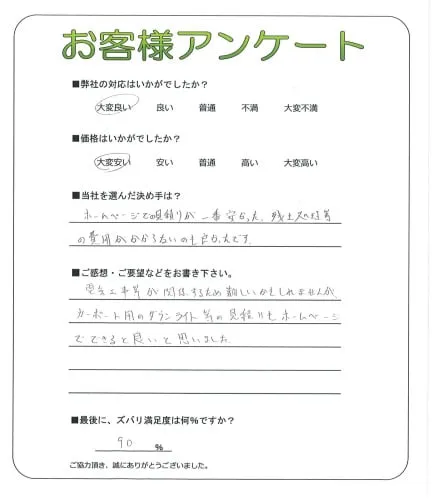 お客様アンケート
■弊社の対応はいかがでしたか？
大変良い 良い 普通 不満 大変不満
■価格はいかがでしたか？
大変安い 安い 普通 高い 大変高い
■当社を選んだ決め手は？
ホームページでの見積りが一番安かった、残土処分等
の費用がかからないのも良かったです。
■ご感想・ご要望などをお書き下さい。
電気工事等が関係するため難しいかもしれませんが、
カーポート用のダウンライト等の見積りもホームページ
でできると良いと思いました
■最後に、ズバリ満足度は何％ですか？
90 ％
ご協力頂き、誠にありがとうございました。